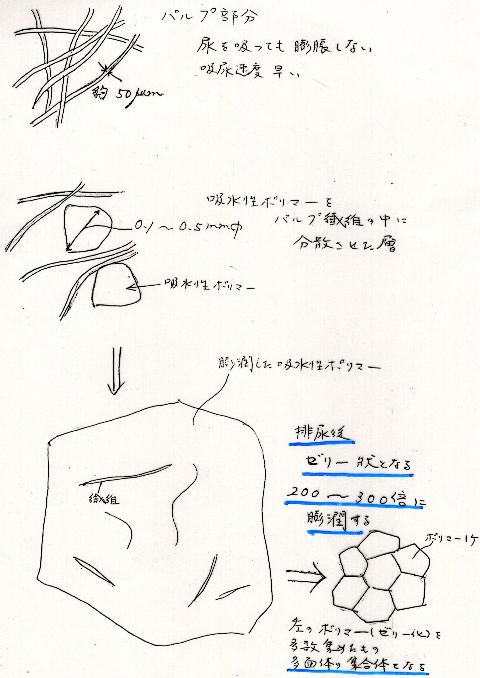 パルプ部分
尿を吸っても膨脹しない
吸尿速度早い
約50μm
吸水性ポリマーを
パルプ繊維の中に
分散させた層
0.1～0.5mmφ
吸水性ポリマー
膨潤した吸水性ポリマー
繊維
排尿後
ゼリー状となる
200～300倍に
膨潤する
ポリマー1ケ
左のポリマー(ゼリー化)を
多数集めたもの
多面体の集合体となる